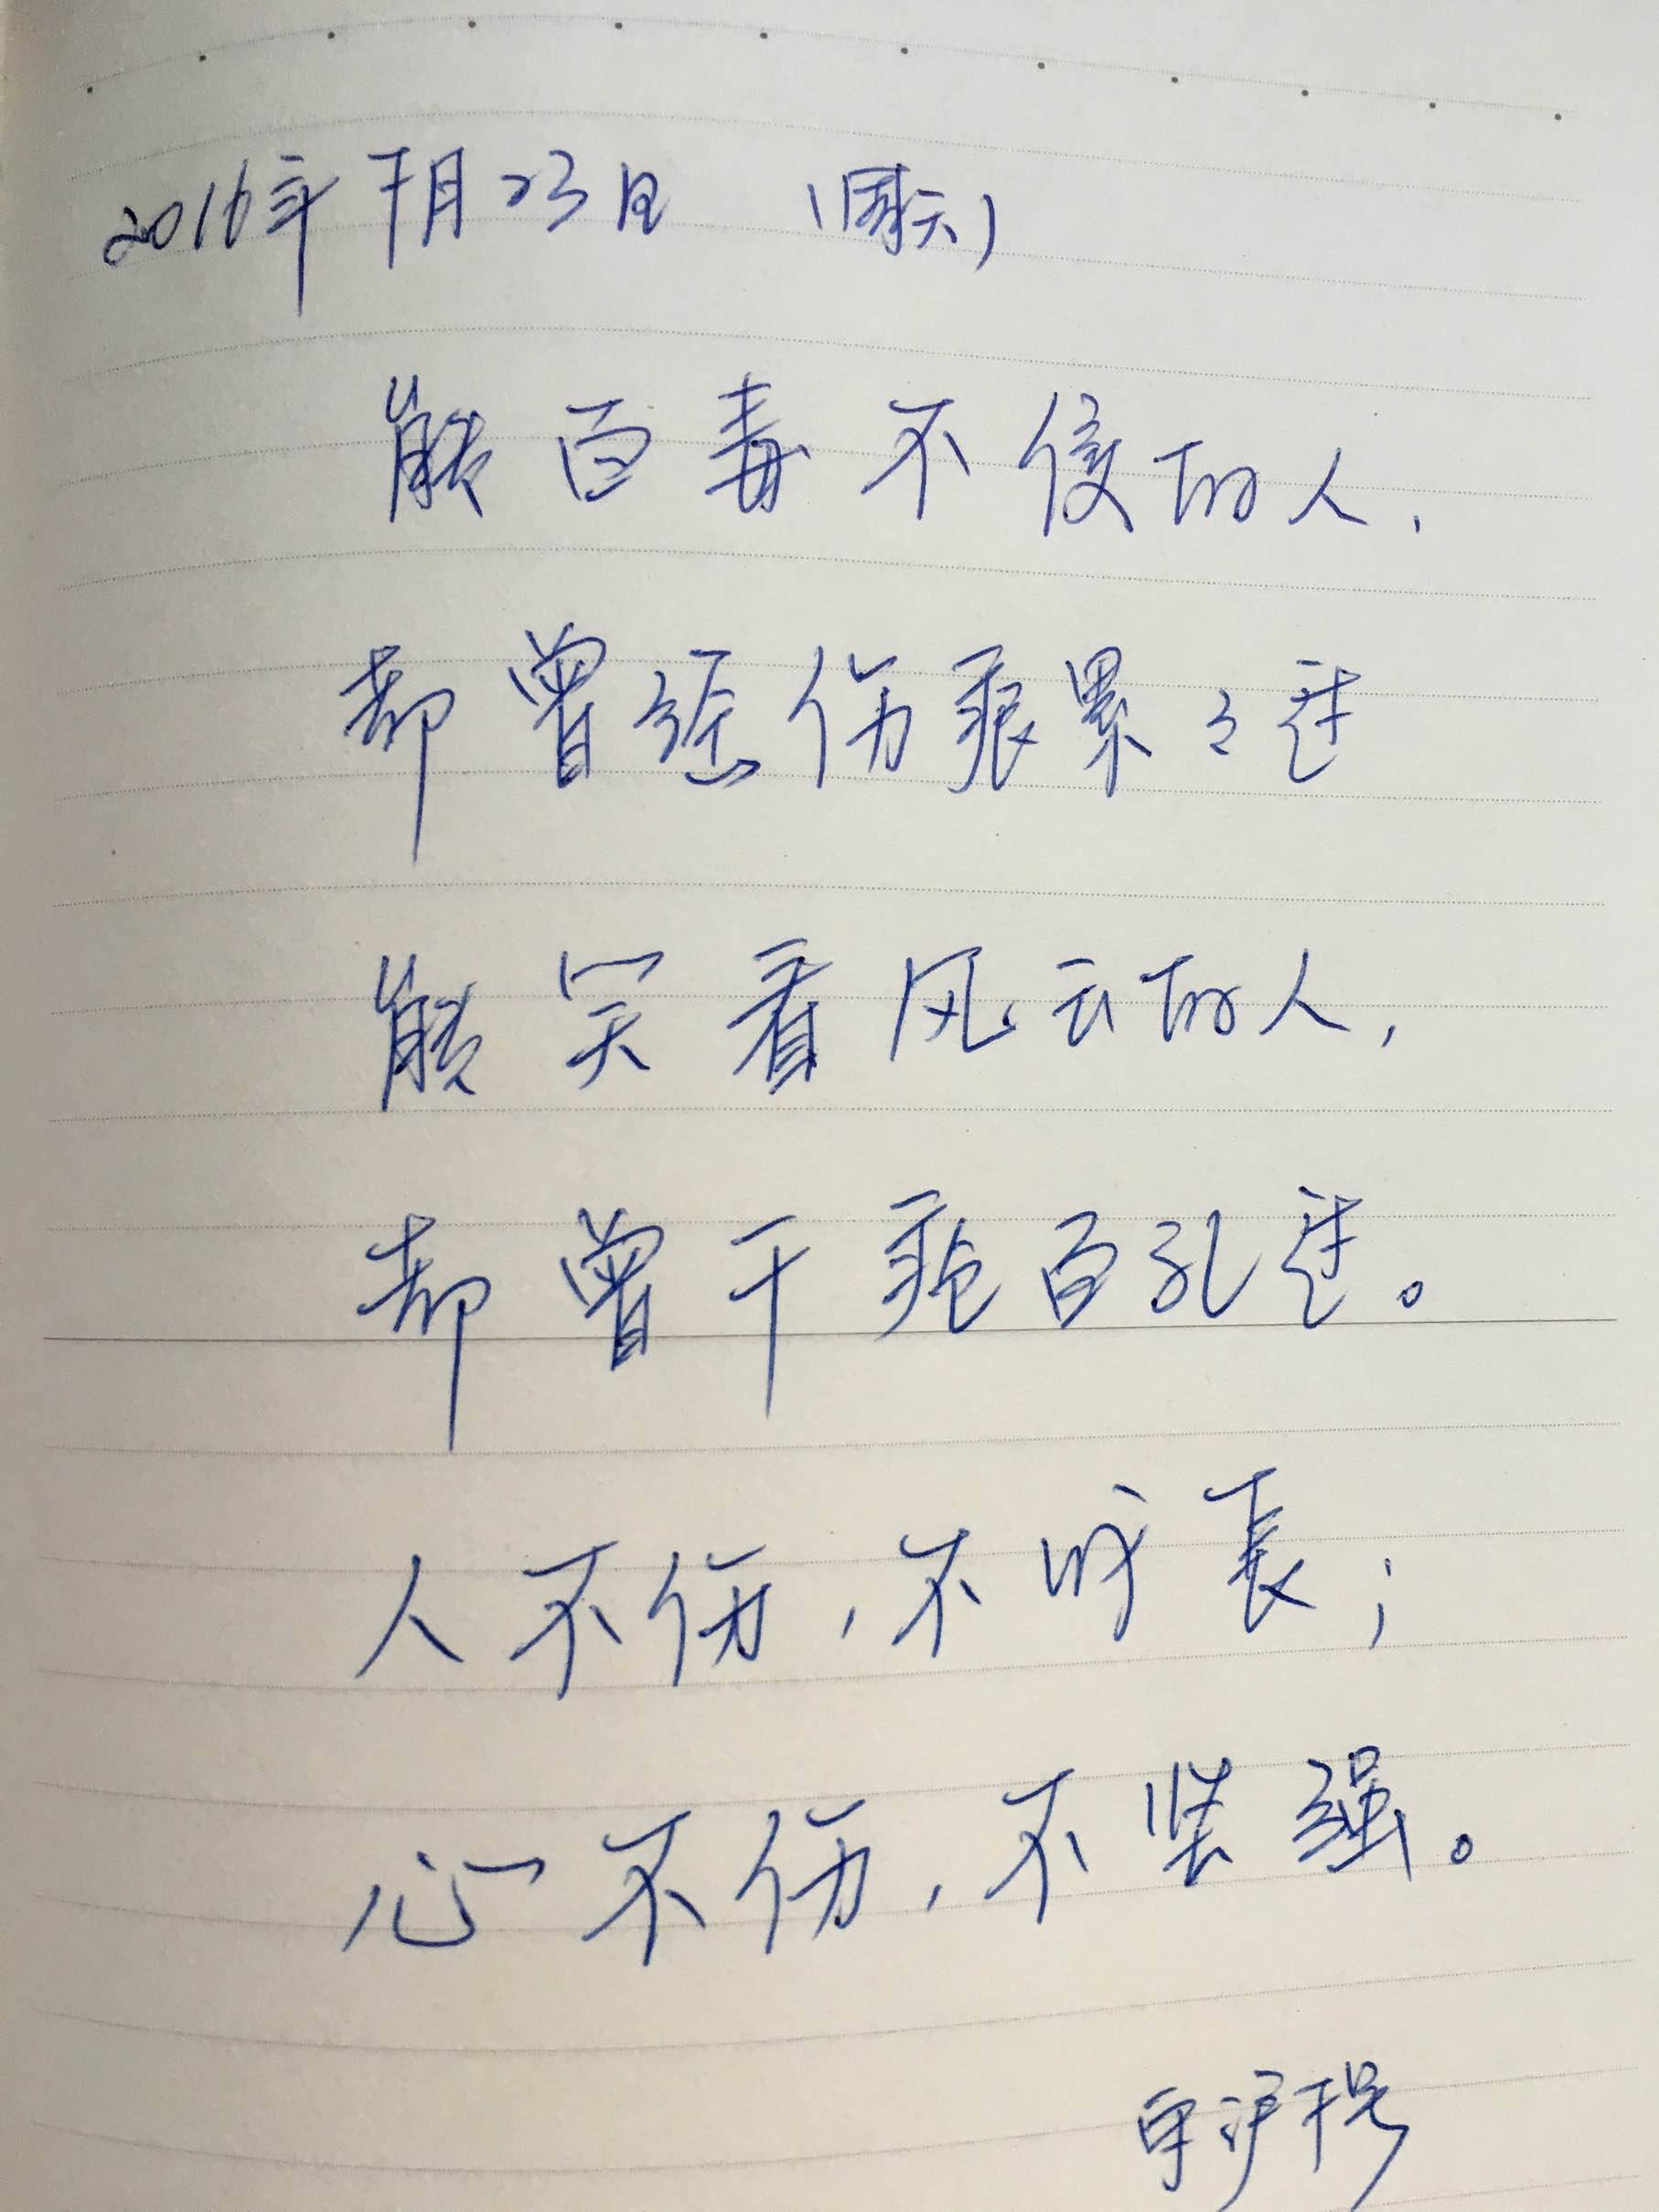 2016年7月23日 （周六）
能百毒不侵的人，
都曾经伤痕累々过
能笑看风云的人，
都曾千疮百孔过。
人不伤，不成长；
心不伤，不坚强。